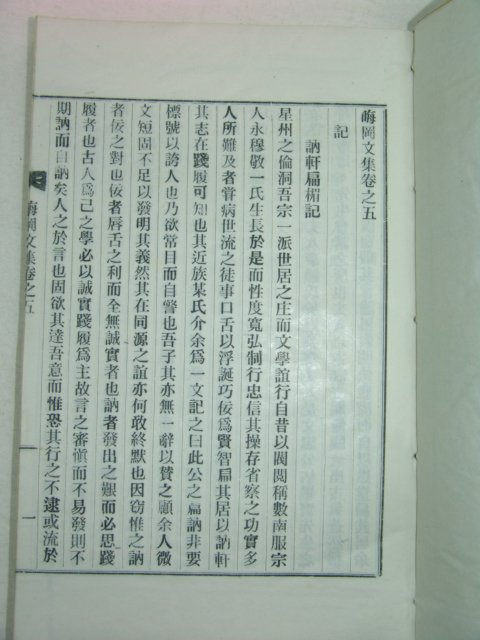 晦岡文集卷之五
記
訥軒扁楣記
星州之倫洞吾宗一派世居之庄而文學誼行自昔以閥閱稱數南服宗
人永穆敬一氏生長於是而性度寬弘制行忠信其操存省察之功實多
人所難及者甞病世流之徒事口舌以浮誕巧佞爲賢智扁其居以訥軒
其志在踐履可知也其近族某氏介余爲一文記之曰此公之扁訥非要
標號以誇人也乃欲常目而自警也吾子其亦無一辭以贊之顧余人微
文短固不足以發明其義然其在同源之誼亦何敢終默也因窃惟之訥
者佞之對也佞者唇舌之利而全無誠實者也訥者發出之艱而必思踐
履者也古人爲己之學必以誠實踐履爲主故言之審愼而不易發則不
期訥而自訥矣人之於言也固欲其達吾意而惟恐其行之不逮或流於
晦岡文集卷之五
一